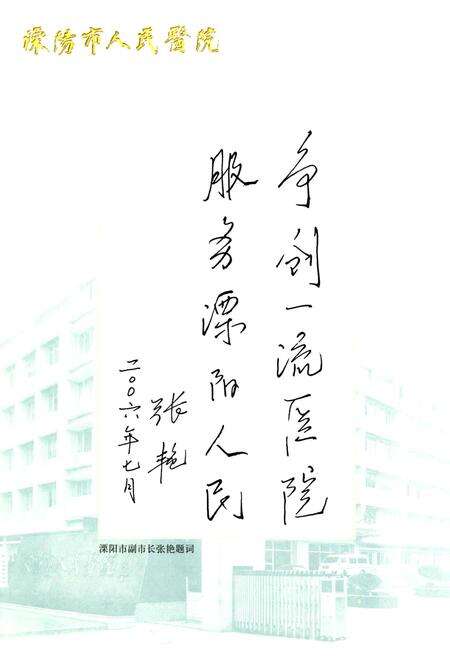 溧陽市人民醫院
争创一流医院
服务溧阳人民
张艳
二〇〇六年七月
溧阳市副市长张艳题词